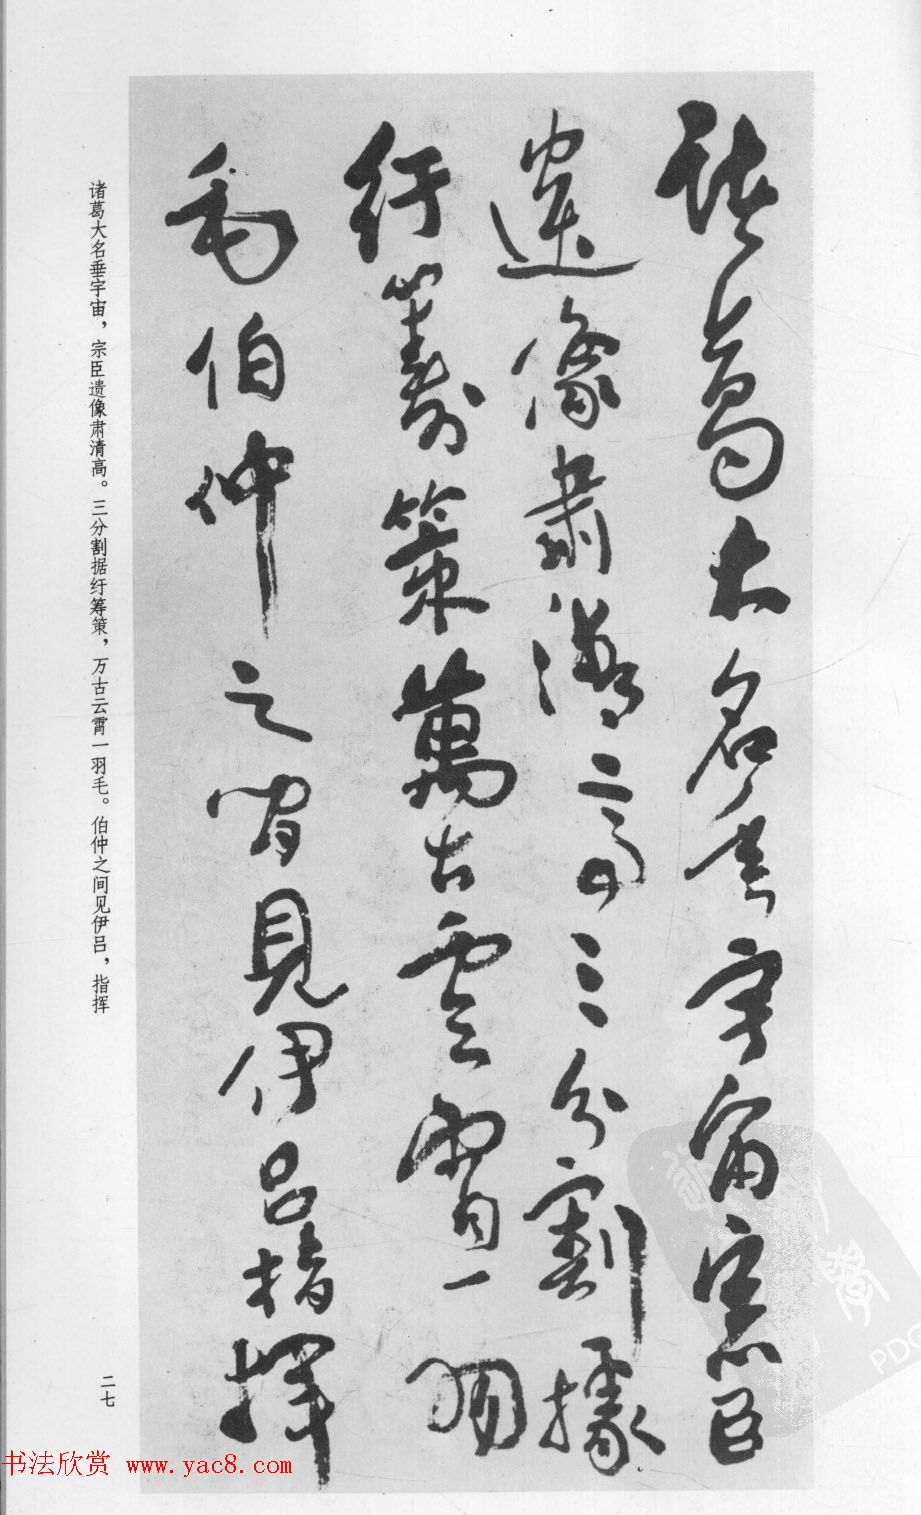 諸葛大名垂宇宙宗臣
遺像肅清高三分割據
紆籌策萬古雲霄一羽
毛伯仲之間見伊呂指揮
诸葛大名垂宇宙，宗臣遗像肃清高。三分割据纡筹策，万古云霄一羽毛。伯仲之间见伊吕，指挥
二七
书法欣赏 www.yac8.com
PDG